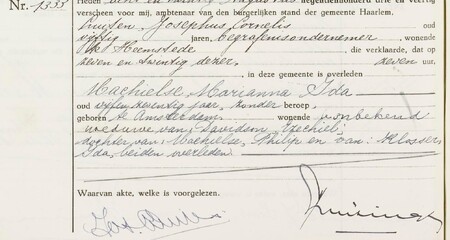 Nr. 1335
Heden negentienhonderd drie en veertig
verscheen voor mij, ambtenaar van den burgerlijken stand der gemeente Haarlem,
Josephus Cornelis oud
vijftig jaren, begrafenisondernemer, wonende
te Heemstede die verklaarde, dat op
zeven en twintig dezer, zeven uur.
in deze gemeente is overleden
Machielse Marianna Ida
oud vijfenzeventig jaar, zonder beroep
geboren te Amsterdam wonende onbekend
weduwe van: Davidson, Ezechiel,
dochter van: Machielse, Philip en van: Klosser,
Ida, beiden overleden.
Waarvan akte, welke is voorgelezen.